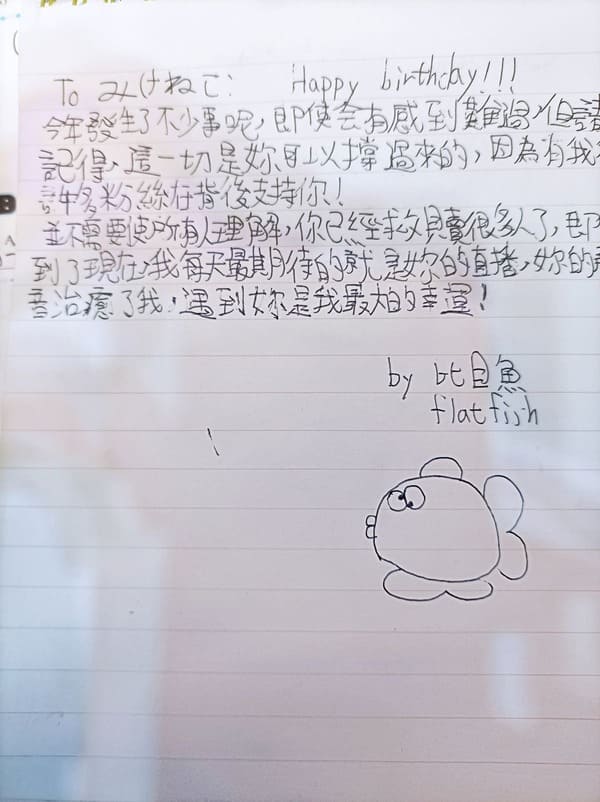 To みけねこ: Happy birthday!!!
今年發生了不少事呢,即使会有感到難過,但請
記得,這一切是妳可以撐過來的,因為有我
許多粉絲在背後支持你!
並不需要使所有人理解,你已經救贖很多人了,
到了現在,我每天最期待的就是妳的直播,妳的
音治癒了我,遇到妳是我最大的幸運!
by 比目魚
flatfish